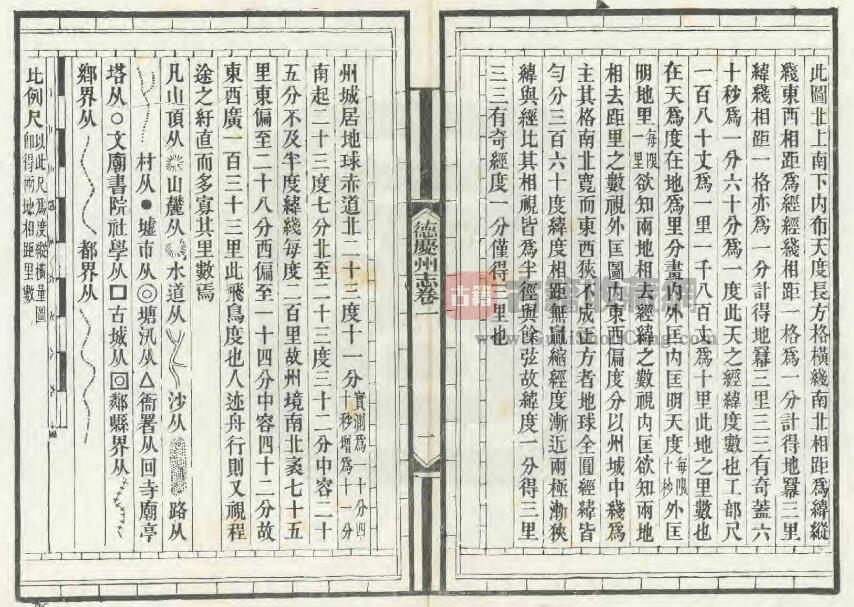 此圖北上南下內布天度長方格橫綫南北相距爲緯縱
綫東西相距爲經經綫相距一格爲一分計得地羃三里
緯綫相距一格亦爲一分計得地羃三里三三有奇蓋六
十秒爲一分六十分爲一度此天之經緯度數也工部尺
一百八十丈爲一里一千八百丈爲十里此地之里數也
在天爲度在地爲里分畫內外匡內匡明天度每限十秒外匡
明地里每限一里欲知兩地相去經緯之數視內匡欲知兩地
相去距里之數視外匡圖 東西偏度分以州城中綫爲
主其格南北寬而東西狹不成正方者地球全圓經緯皆
勻分三百六十度緯度相距無贏縮經度漸近兩極漸狹
緯與經比其相視皆爲半徑與餘弦故緯度一分得三里
三三有奇經度一分僅得三里也
德慶州志卷一
一
州城居地球赤道北二十三度十一分實測爲一十分四十秒增爲一十一分
南起二十三度七分北至二十三度三十二分中容二十
五分不及半度緯綫每度二百里故州境南北袤七十五
里東偏至二十八分西偏至一十四分中容四十二分故
東西廣一百三十三里此飛鳥度也人迹舟行則又視程
途之紆直而多寡其里數焉
凡山頂从 山麓从 水道从 沙从 路从
村从●墟市从◎塘汛从△衙署从回寺廟亭
塔从○文廟書院社學从口古城从回鄰縣界从
鄉界从 都界从
比例尺以此尺爲度縱橫量圖卽得兩地相距里數
古籍